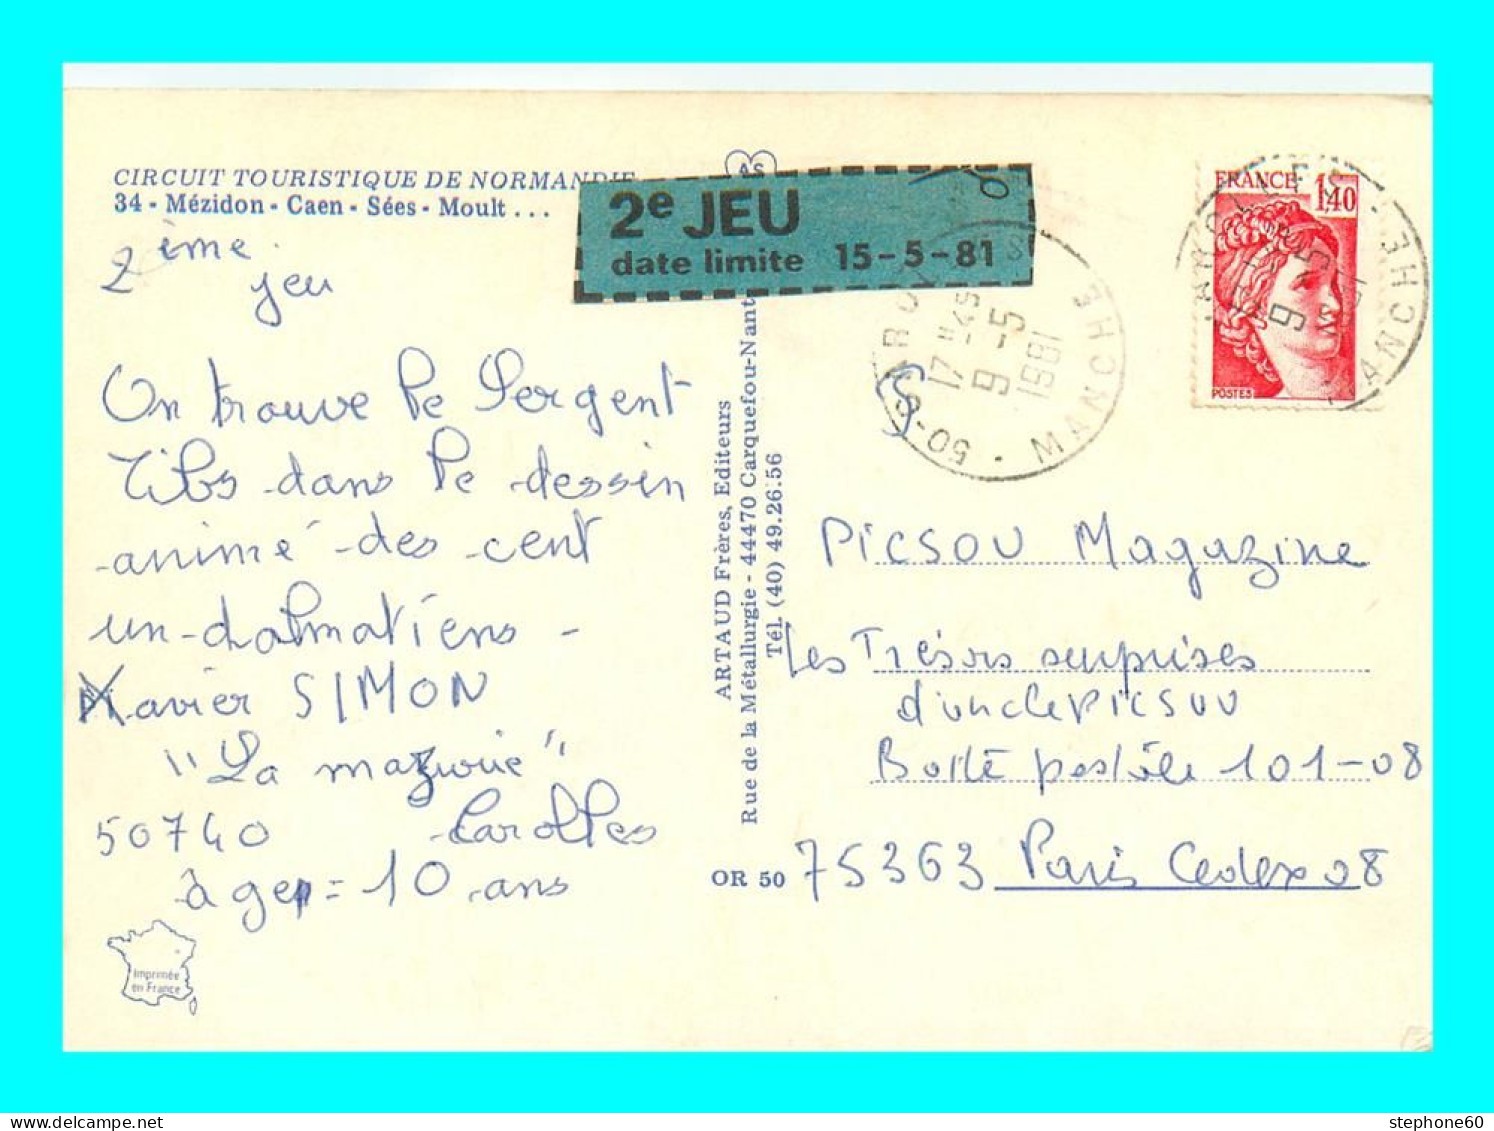 CIRCUIT TOURISTIQUE DE NORMANDIE
34 - Mézidon - Caen - Sées - Moult . . .
2ème jeu
On trouve le Sergent
Tibs dans le dessin
animé des cent
un-dalmatiens -
Xavier SIMON
"La mazurie"
50740 Carolles
âge = 10 ans
Imprimée
en France
AS
2e JEU
date limite 15-5-81
ARTAUD Frères, Editeurs
Rue de la Métallurgie - 44470 Carquefou-Nant
Tél. (40) 49.26.56
OR 50
17 H-45
9 -5
1981
50 - MANCHE
FRANCE 1,40
POSTES
9 -5
MANCHE
PICSOU Magazine
Les Trésors surprises
d'unclePICSOU
Boîte postale 101-08
75363 Paris Cedex 08
stephone60